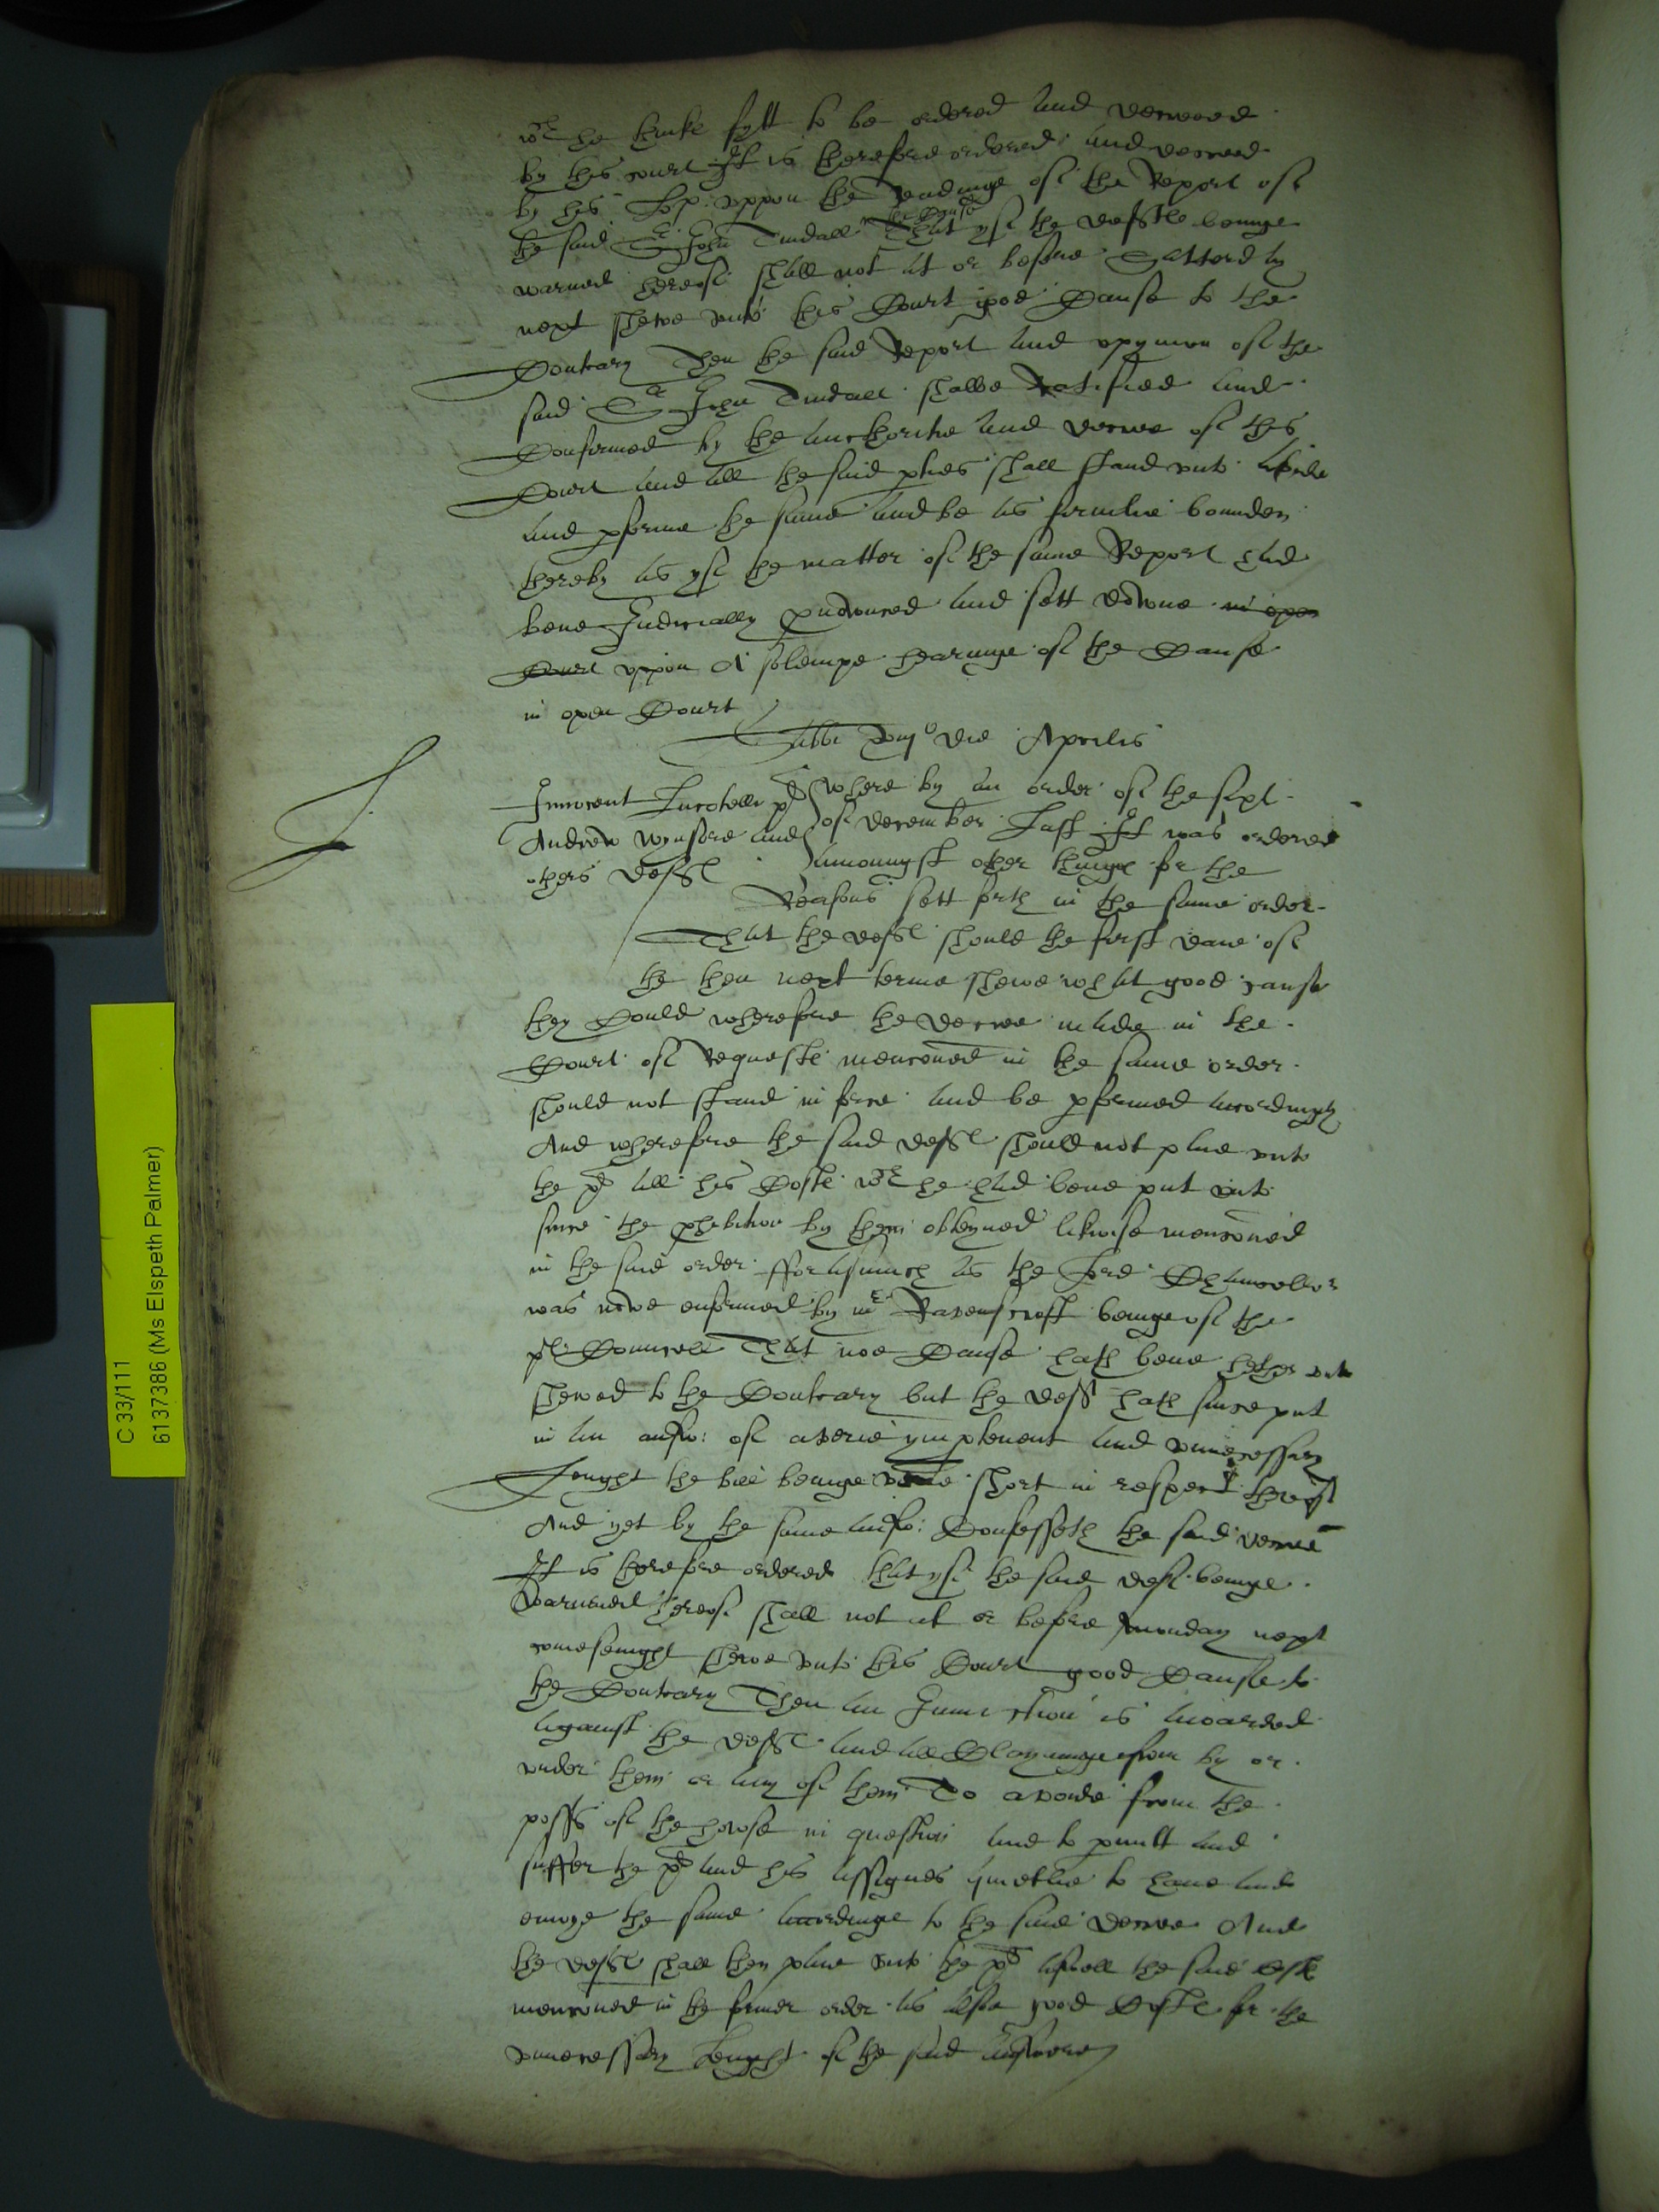 wch he thinke fytt to be ordered and decreed
by this court It is therefore ordered and decreed
by his Lop: uppon the readinge of the Report of
the said Sr John Tindall That yf the defte beinge
warned hereof shall not at or before Satterday
next shewe unto this Court good Cause to the
Contrary Then the said Report and opynion of the
said Sr John Tindall shalbe Ratified and
Confirmed by the aucthoritie and decree of this
Court and all the said pties shall stand unto abide
and pforme the same and be as firmelie bounden
thereby as yf the matter of the same Report had
bene Judicially pnounced and sett downe in open
Court uppon A solempe hearinge of the Cause
in open Court
Sabbi die Aprilis
Innocent plt where by an order of the sixt
Andrew Wynsore and of december Last It was ordered
others deftes amoungst other thinges for the
Reasons sett forth in the same order
That the deftes should the first daie of
the then next terme shewe what good cause
they Could wherefore the decree made in the
Court of Requestes mencioned in the same order
should not stand in force and be pformed accordingly
And wherefore the said deftes should not paie unto
the plt all his Costes wch he had bene put unto
since the phibition by them obteyned likwise mencioned
in the said order fforasmuch as the Lord Chauncellor
was nowe enformed by mr Ravenscroft beinge of the
pls Councell That noe Cause hath bene hetherunto
shewed to the Contrary but the deft hath since put
in an answ: of a verie ympertinent and unnecessary
Lenght the bill beinge verie short in respect therof
And yet by the same answ: Confesseth the said decree
It is therefore ordered that yf the said deft beinge
warned hereof shall not at or before monday next
comesenight shewe unto this Court good Cause to
the Contrary Then an Iniunction is awarded
against the deftes and all Clayminge from by or
under them or any of them To avoide from the
possn of the howse in question and to pmitt and
suffer the plt and his assignes quietlie to have and
enioye the same accordinge to the said decree And
the deftes shall then paie unto the plt aswell the said costes
mencioned in the former order as also good Costes for the
unnecessary Lenght of the said answere
C 33/111
6137386 (Ms Elspeth Palmer)